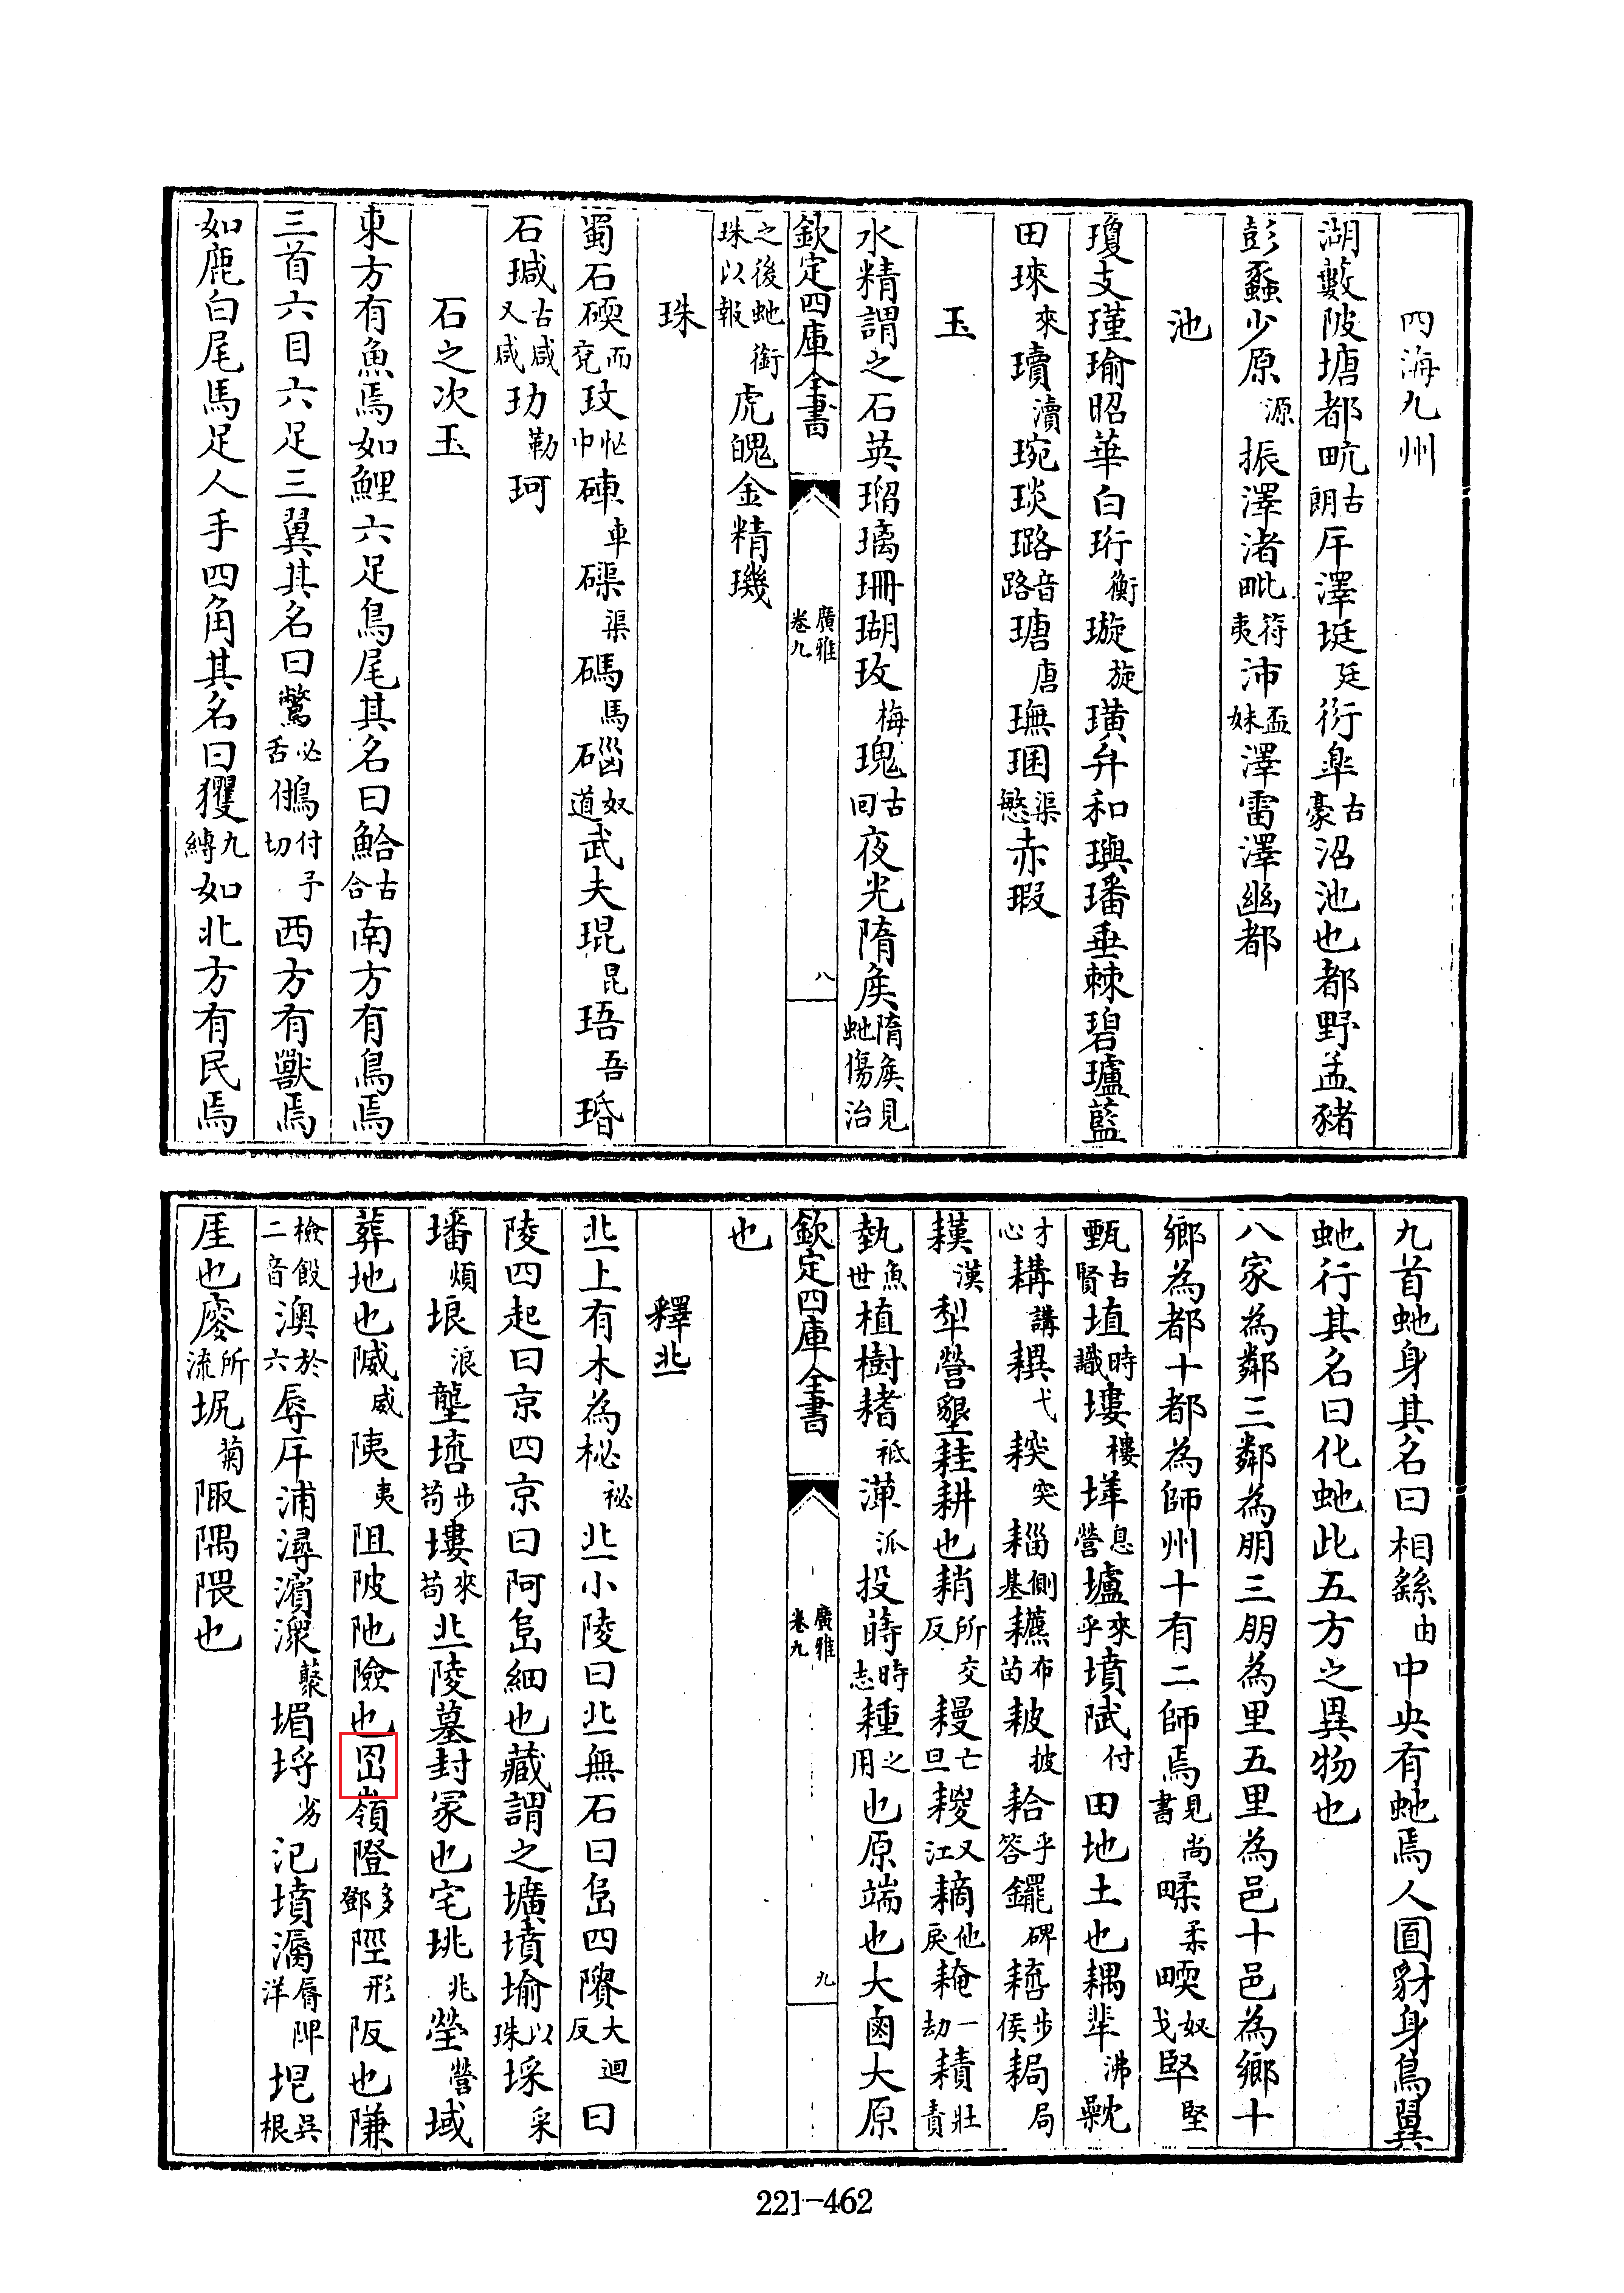 四海九州
湖藪陂塘都畩古朗㡿澤埏廷衍臯古豪沼池也都野孟豬
彭蠡少原源振澤渚毗符夷沛盃妹澤雷澤幽都
池
瓊支瑾瑜昭華白珩衡璇旋璜弁和璵璠垂棘碧瓐藍
田琜來瓄瀆琬琰璐音路瑭唐璑珚渠慜赤瑕
玉
水精謂之石英瑠璃珊瑚玫梅瑰古回夜光隋矦隋矦見虵傷治
欽定四庫全書
廣雅
卷九
八
之後虵銜珠以報虎魄金精璣
珠
蜀石碝而兖玟忙巾硨車磲渠碼馬碯奴道武夫琨昆珸吾㻒
石瑊古咸又咸玏勒珂
石之次玉
東方有魚焉如鯉六足鳥尾其名曰鮯古合南方有鳥焉
三首六目六足三翼其名曰鷩必舌䳇付予切西方有獸焉
如鹿白尾馬足人手四角其名曰玃九縛如北方有民焉
九首虵身其名曰相繇由中央有虵焉人面豺身鳥翼
虵行其名曰化虵此五方之異物也
八家為鄰三鄰為朋三朋為里五里為邑十邑為鄉十
鄉為都十都為師州十有二師焉見尚書㽥柔畷奴戈堅堅
甄古賢埴時識塿樓垟息營壚來乎墳賦付田地土也耦辈沸耿
才心耩講䅼弋䅗突䎩側基䎱布苗耚披䎋乎答䥯碑䎧步侯䎤局
䎬漢犁營墾䎳耕也䎐所交反䎱亡旦䎫又江䎮他戾䎨一劫䎱壯責
埶魚世植樹䅲祗䔽派投蒔時志種之用也原端也大鹵大原
欽定四庫全書
廣雅
卷九
九
也
釋丠
丠上有木為柲祕丠小陵曰丠無石曰𨸏四隤大迴反曰
陵四起曰京四京曰阿𨸏細也藏謂之壙墳瑜以珠埰采
墦煩埌浪壟培步苟塿來苟丠陵墓封冢也宅垗兆塋營域
葬地也隇威陦夷阻陂阤險也𡶨嶺隥多鄧陘形阪也隒
檢餀二音澳於六厗㡿浦潯濱潀藂堳埒劣汜墳漘脣浬洋垠吳根
厓也㕍所流坭菊陬隅隈也
221-462